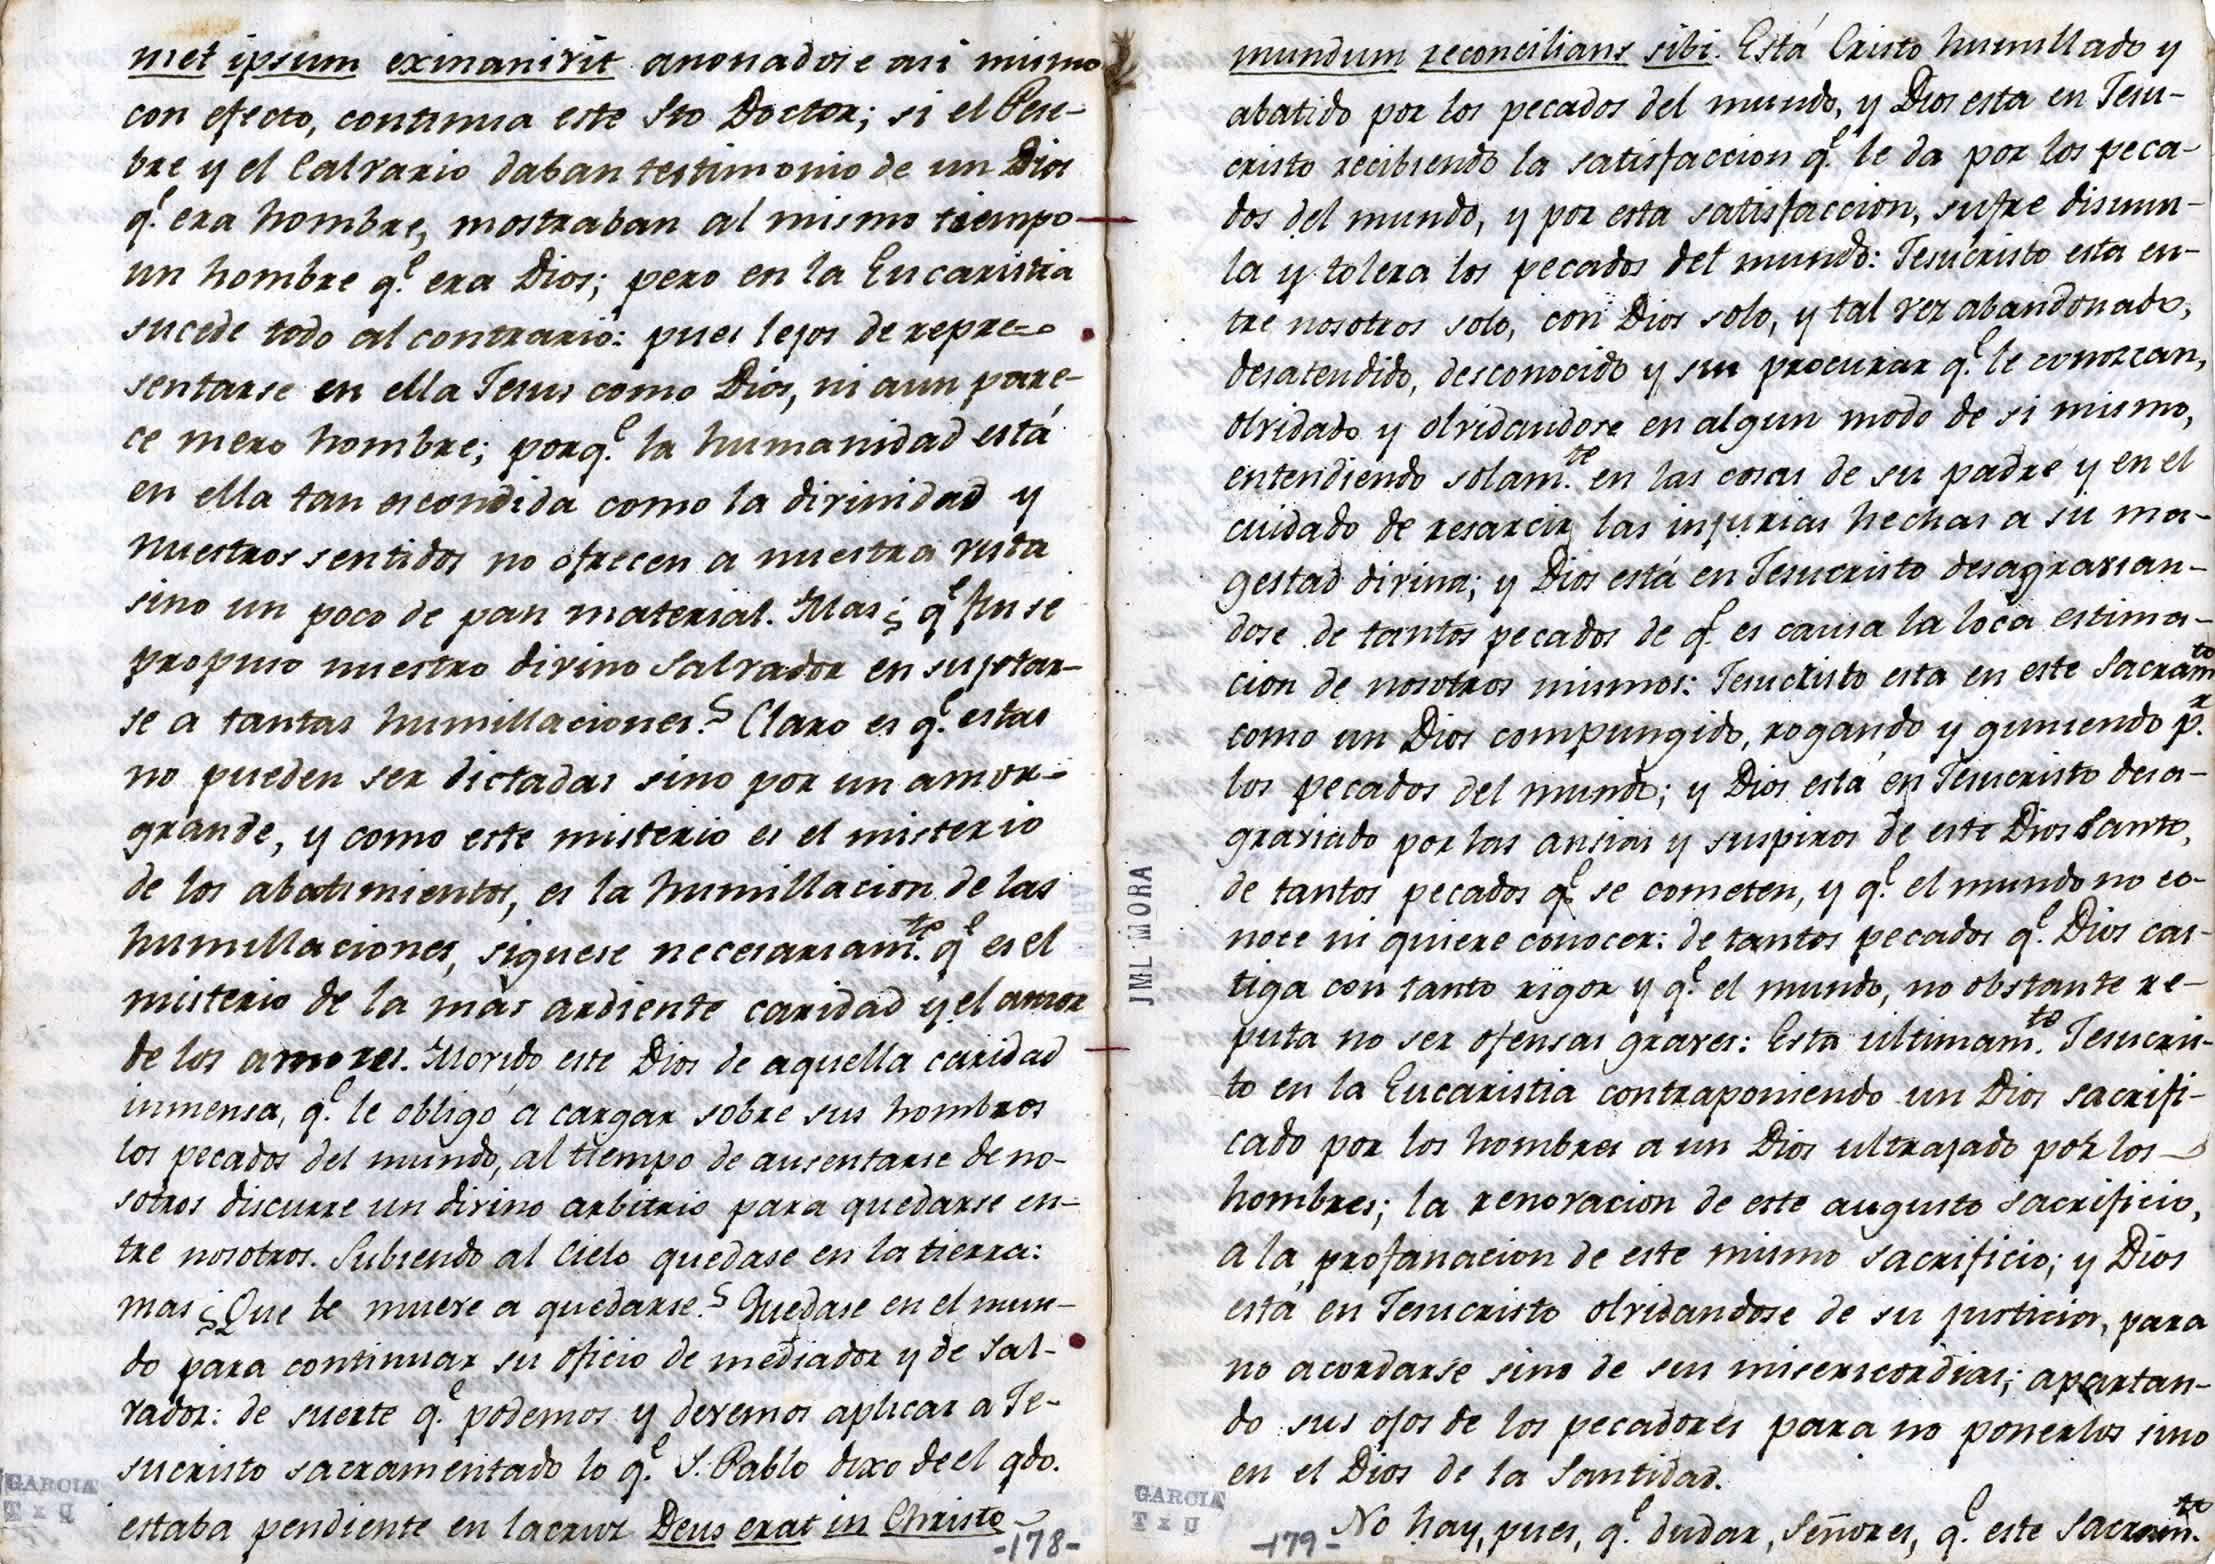 met ipsum exinanivit anonadose asi mismo
con efecto, continua este Sto Doctor; si el Pese-
bre y el Calvario daban testimonio de un Dios
q.e era hombre, mostraban al mismo tiempo
un hombre q.e era Dios; pero en la Eucaristia
sucede todo al contrario: pues lejos de repre-
sentarse en ella Jesus como Dios, ni aun pare-
ce mero hombre; porq.e la humanidad está
en ella tan escondida como la divinidad y
nuestros sentidos no ofrecen a nuestra vista
sino un poco de pan material. Mas ¿ q.e fin se
propuso nuestro divino Salvador en sujetar-
se a tantas humillaciones? Claro es q.e estas
no pueden ser dictadas sino por un amor
grande, y como este misterio es el misterio
de los abatimientos, es la humillacion de las
humillaciones, siguese necesariam.te q.e es el
misterio de la más ardiente caridad y el amor
de los amores. Movido este Dios de aquella caridad
inmensa, q.e le obligó a cargar sobre sus hombros
los pecados del mundo, al tiempo de ausentarse de no-
sotros discurre un divino arbitrio para quedarse en-
tre nosotros. Subiendo al Cielo quedase en la tierra:
mas ¿Que le mueve a quedarse? Quedase en el mun-
do para continuar su oficio de mediador y de Sal-
vador: de suerte q.e podemos y devemos aplicar a Je-
sucristo sacramentado lo q.e S. Pablo dixo de el qdo.
estaba pendiente en la cruz Deus erat in Christo
-178-
GARCIA
T x U
mundum reconcilians sibi. Está Cristo humillado y
abatido por los pecados del mundo, y Dios esta en Jesu-
cristo recibiendo la satisfaccion q.e le da por los peca-
dos del mundo, y por esta satisfaccion, sufre disimu-
la y tolera los pecados del mundo: Jesucristo esta en-
tre nosotros solo, con Dios solo, y tal vez abandonado,
desatendido, desconocido y sin procurar q.e le conozcan,
olvidado y olvidandose en algun modo de si mismo,
entendiendo solam.te en las cosas de su padre y en el
cuidado de resarcir las injurias hechas a su ma-
gestad divina; y Dios está en Jesucristo desagravian-
dose de tantos pecados de q.e es causa la loca estima-
cion de nosotros mismos: Jesucristo esta en este Sacram.to
como un Dios compungido, rogando y gimiendo p.r
los pecados del mundo; y Dios está en Jesucristo desa-
graviado por las ansias y suspiros de este Dios Santo,
de tantos pecados q.e se cometen, y q.e el mundo no co-
noce ni quiere conocer: de tantos pecados q.e Dios cas-
tiga con tanto rigor y q.e el mundo, no obstante re-
puta no ser ofensas graves: Esta ultimam.te Jesucris-
to en la Eucaristia contraponiendo un Dios sacrifi-
cado por los hombres a un Dios ultrajado por los
hombres; la renovacion de este augusto sacrificio,
a la profanacion de este mismo sacrificio; y Dios
está en Jesucristo olvidandose de su justicia, para
no acordarse sino de sus misericordias; apartan-
do sus ojos de los pecadores para no ponerlos sino
en el Dios de la Santidad.
No hay, pues, q.e dudar, Señores, q.e este Sacram.to
-179-
GARCIA
T x U
JML MORA